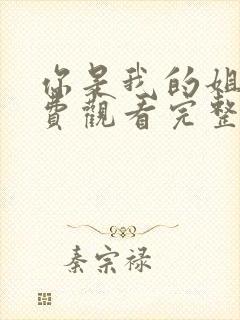 你是我的姐
費觀看完整
秦宗禄